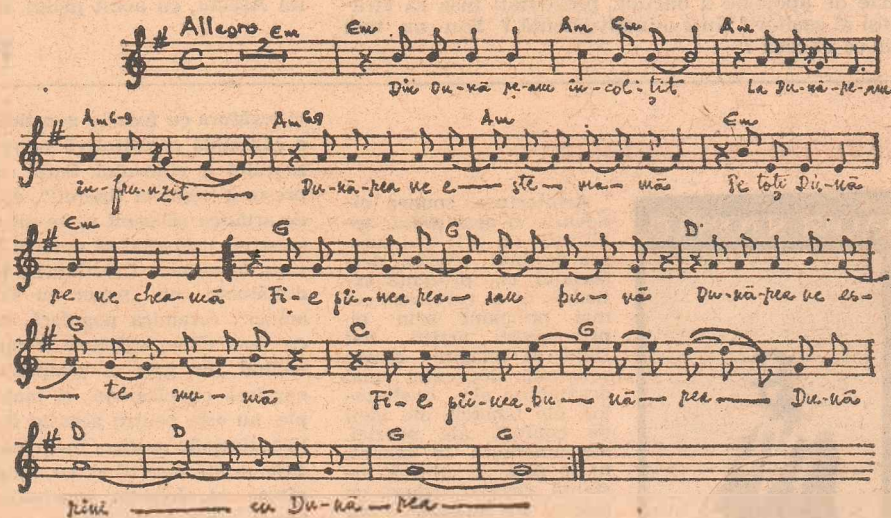 Allegro Em Em Am Em Am
2
Din Du-nă-re-am în-col-țit La Du-nă-re-am
Am6-9 Am69 Am Em
în-frun-zit Du-nă-rea ne e- ște ma-mă Pe toți Du-nă
Em G G D
re ne chea-mă Fi-e pîi-nea rea sau bu-nă Du-nă-rea ne es-
G C G
te mu-mă Fi-e pîi-nea bu-nă-rea Du-nă
D D G G
cu Du-nă-rea